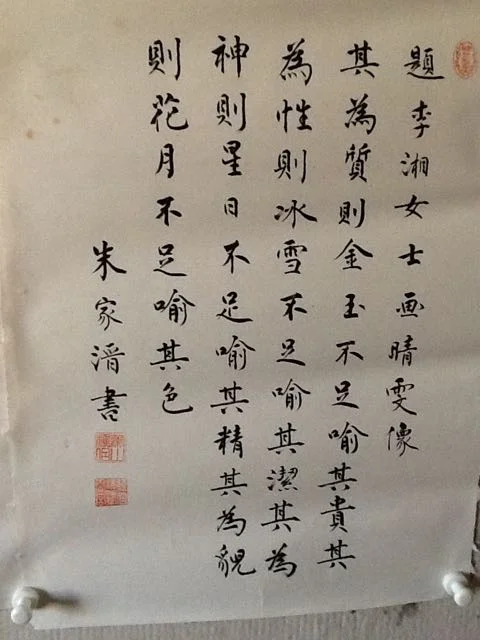 題李湘女士画晴雯像
其為質則金玉不足喻其貴其
為性則冰雪不足喻其潔其為
神則星日不足喻其精其為貌
則花月不足喻其色
朱家溍書